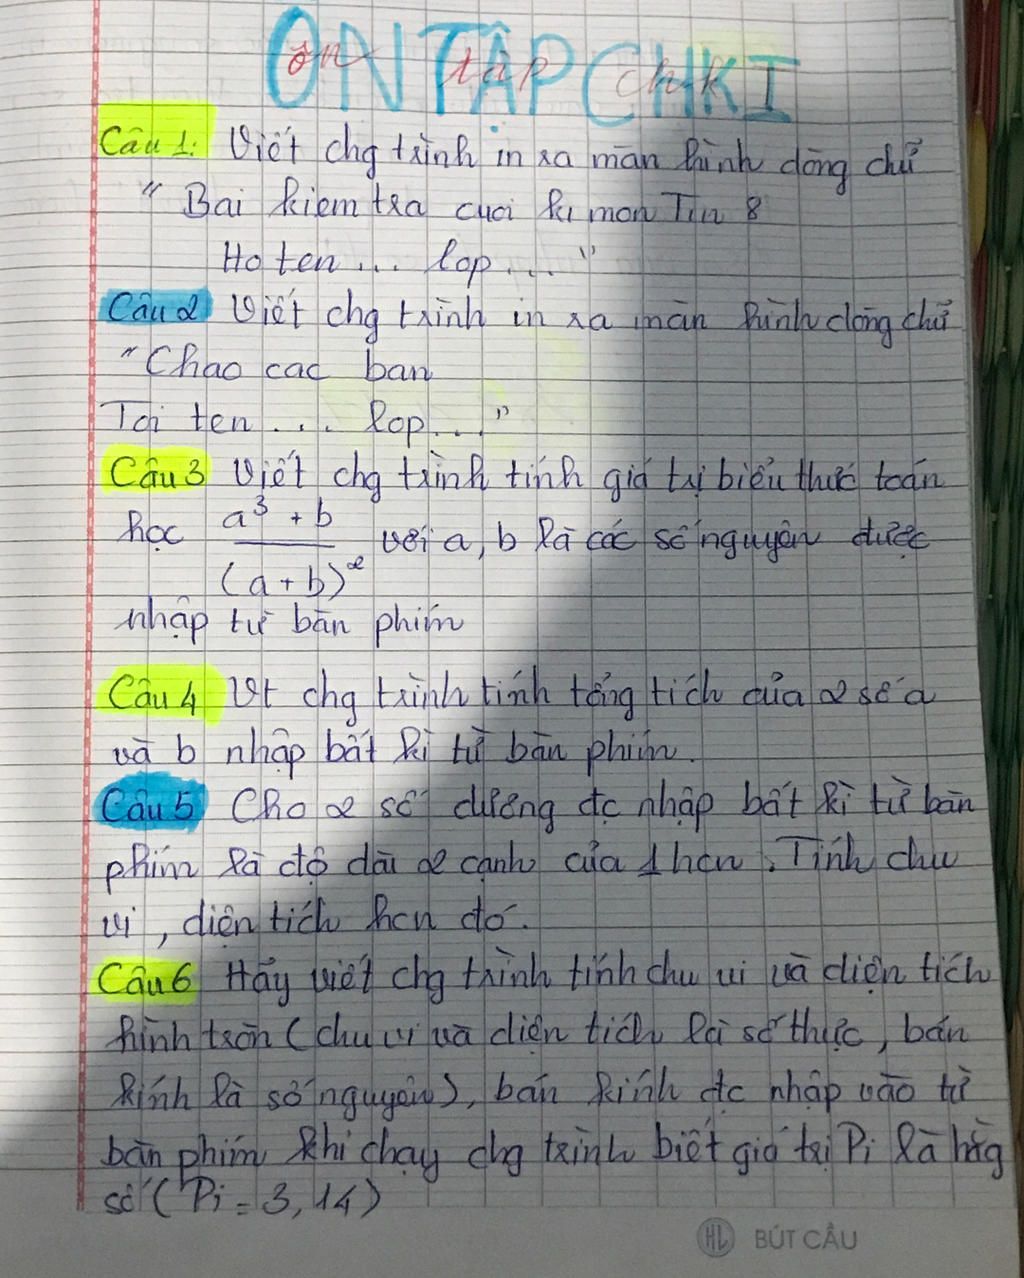 ÔN TẬP CHKI
ôn tập chk
Câu 1: Viết chg trình in ra màn hình dòng chữ
" Bai kiem tra cuoi ki mon Tin 8
Ho ten ... lop ... "
Câu 2 Viết chg trình in ra màn hình dòng chữ
" Chao cac ban
Toi ten .... lop...."
Câu 3 Viết chg trình tính giá trị biểu thức toán
học a³ + b / (a + b)² với a, b là các số nguyên được
nhập từ bàn phím
Câu 4 Vt chg trình tính tổng tích của 2 số a
và b nhập bất kì từ bàn phím.
Câu 5 Cho 2 số dương đc nhập bất kì từ bàn
phím là độ dài 2 cạnh của 1 hcn. Tính chu
vi, diện tích hcn đó.
Câu 6 Hãy viết chg trình tính chu vi và diện tích
hình tròn (chu vi và diện tích là số thực, bán
kính là số nguyên), bán kính đc nhập vào từ
bàn phím khi chạy chg trình biết giá trị Pi là hằng
số (Pi = 3,14)
HL BÚT CÂU